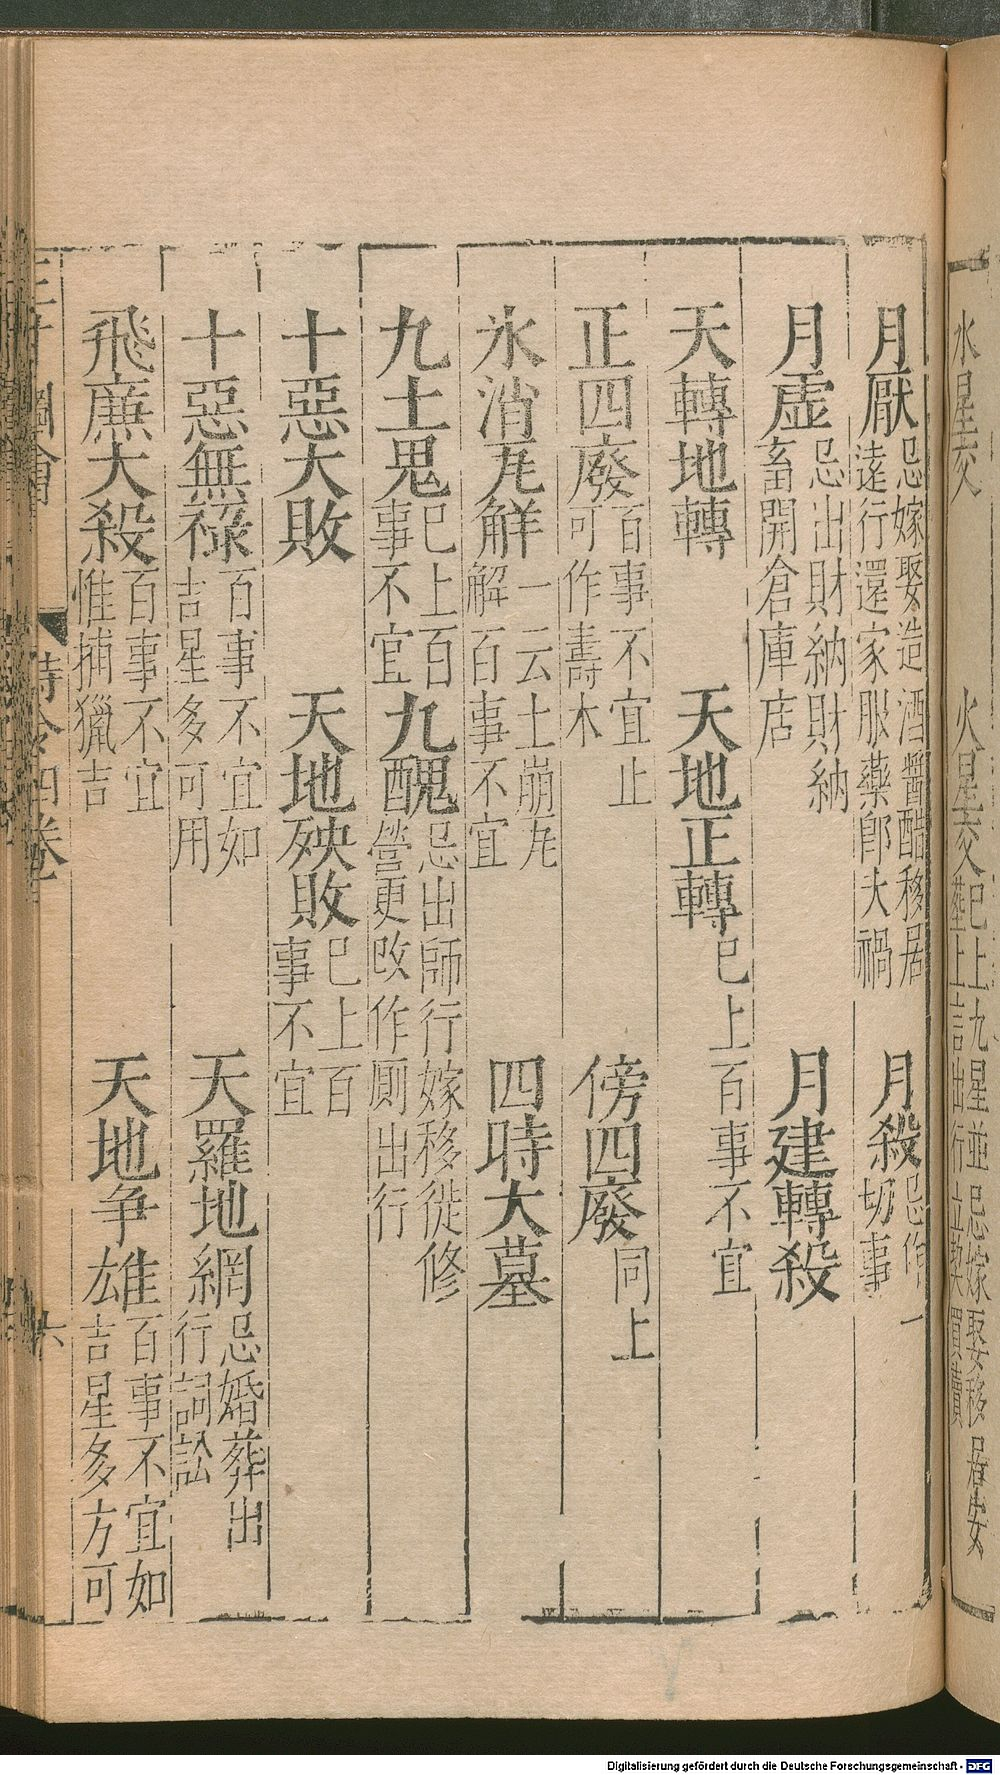 水星亥 火星亥巳上九星並忌嫁娶移居安
上言出行立契買賣
月厭忌嫁娶造酒醬醋移居遠行還家服藥卽大禍 月殺忌作一切事
月虛忌出財納財納畜開倉庫店 月建轉殺
天轉地轉 天地正轉巳上百事不宜
正四廢百事不宜止可作壽木 傍四廢同上
氷消瓦解一云土崩瓦解百事不宜 四時大墓
九土鬼巳上百事不宜 九醜忌出師行嫁移徙修營更改作厠出行
十惡大敗 天地殃敗巳上百事不宜
十惡無祿百事不宜如吉星多可用 天羅地網忌婚葬出行詞訟
飛廉大殺百事不宜惟捕獵吉 天地争雄百事不宜如吉星多方可
圖會 時令四卷 六
Digitalisierung gefördert durch die Deutsche Forschungsgemeinschaft - DFG